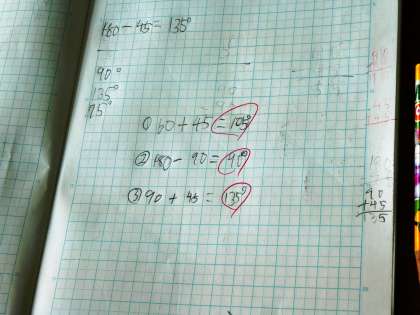 180 - 45 = 135°
90°
135°
75°
① 60 + 45 = 105°
② 180 - 90 = 90°
③ 90 + 45 = 135°
90
+45
135